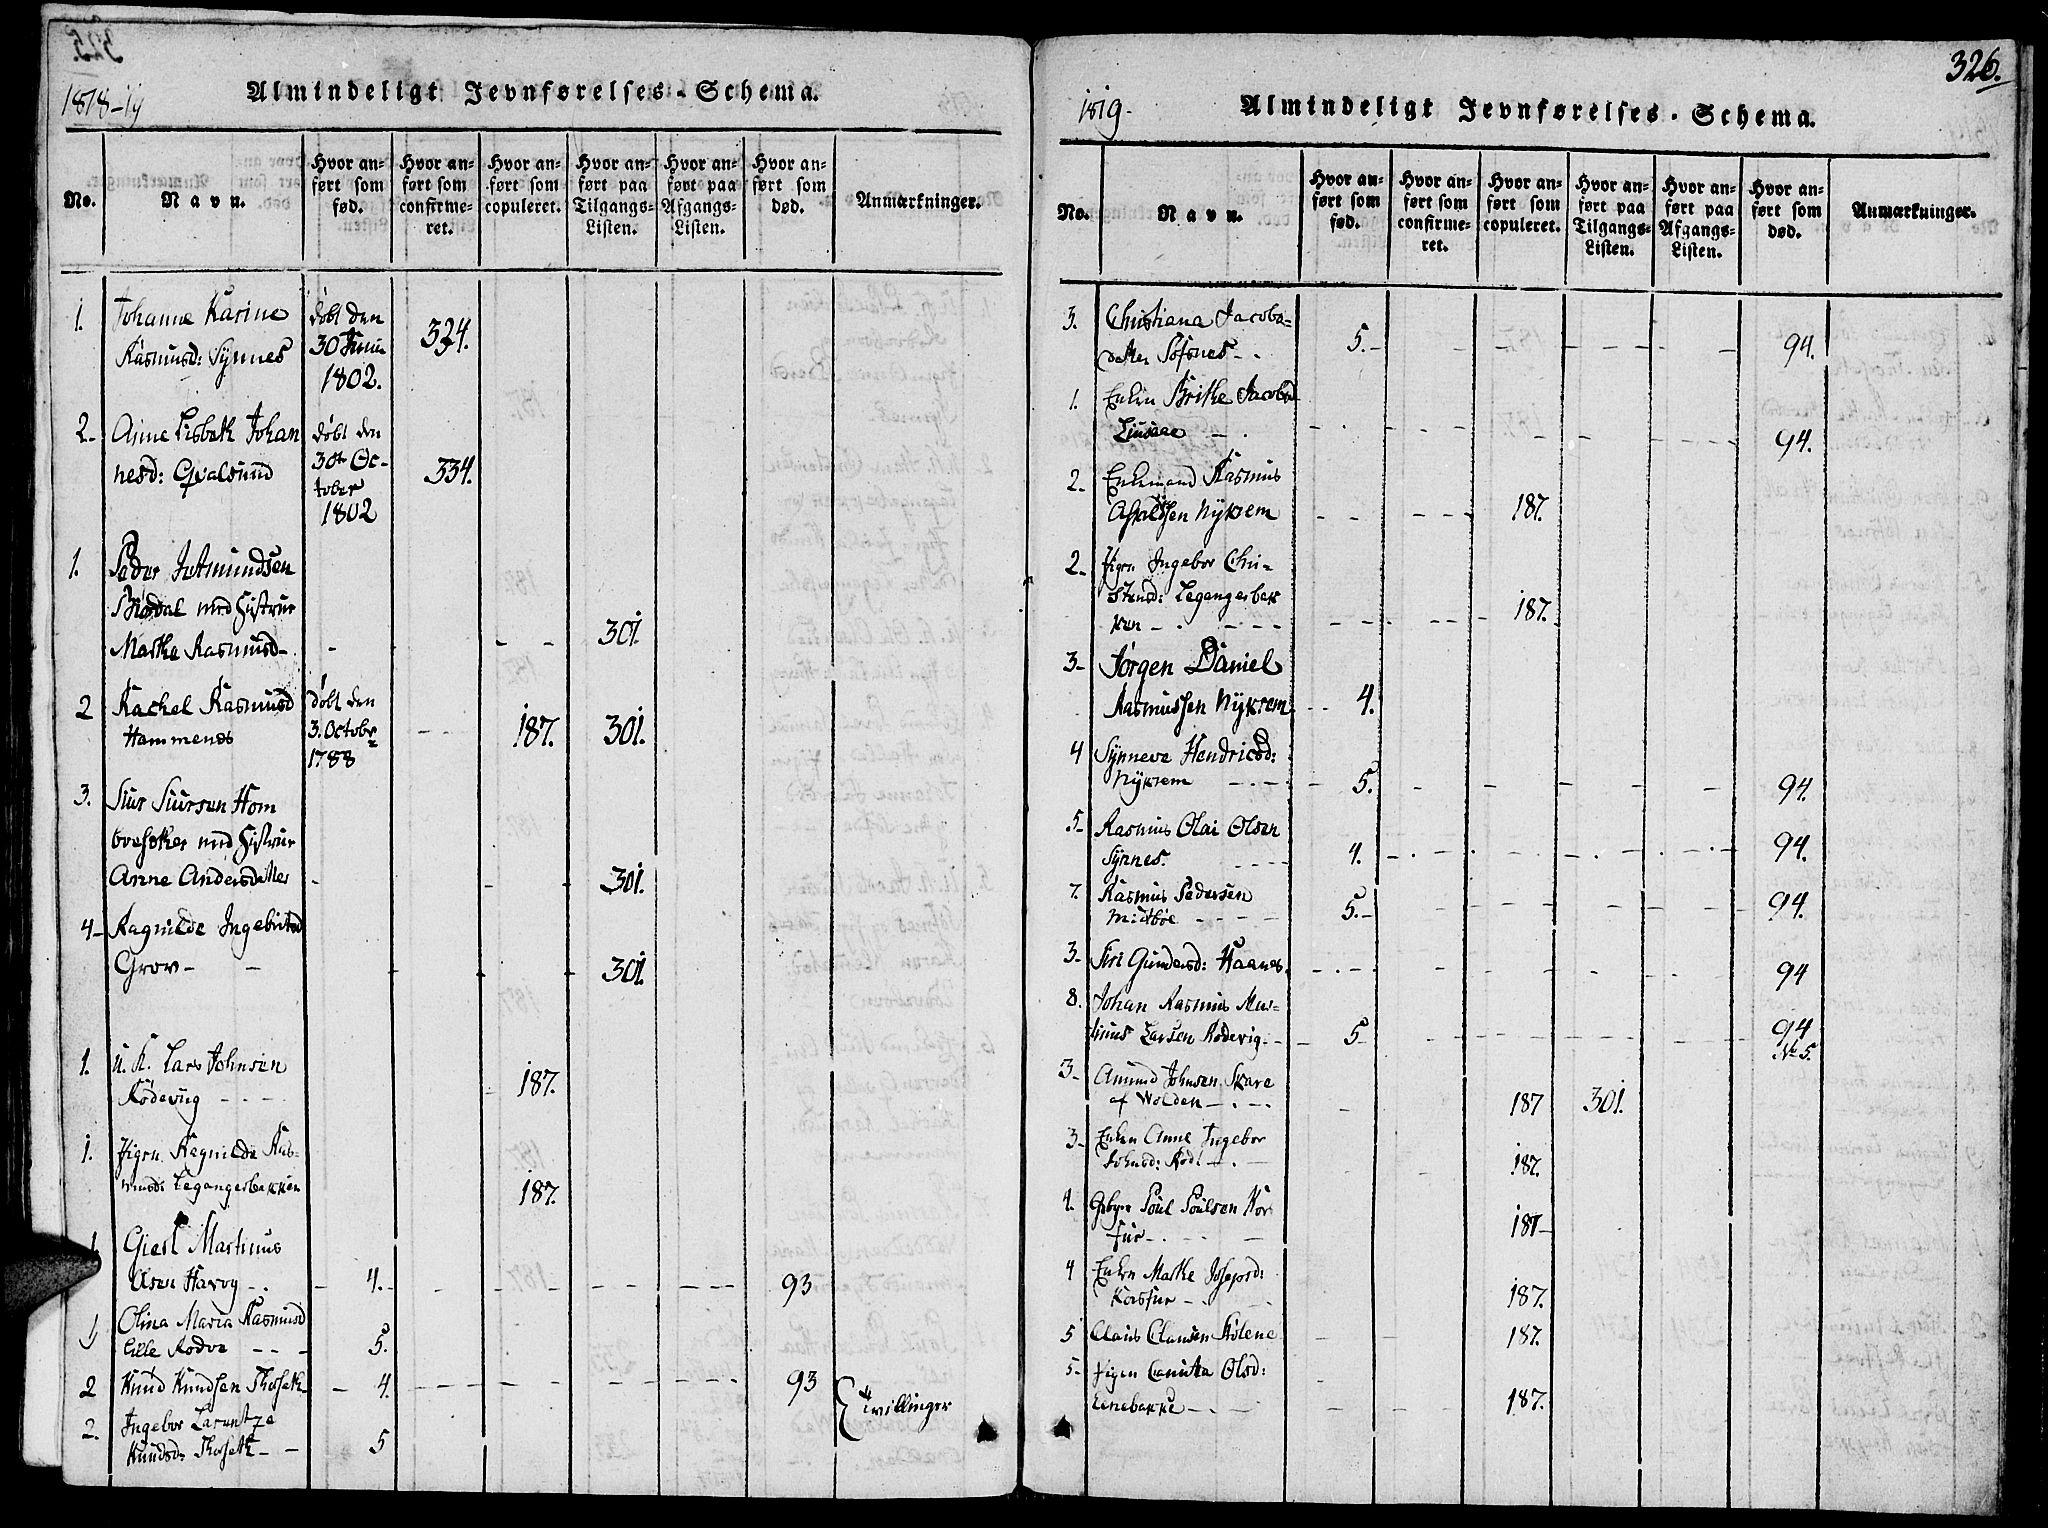 1818-19
Almindeligt Jevnførelses-Schema.
No.
Navn.
Hvor anført som fød.
Hvor anført som confirmeret.
Hvor anført som copuleret.
Hvor anført paa Tilgangs-Listen.
Hvor anført paa Afgangs-Listen.
Hvor anført som død.
Anmærkninger.
1. Johanne Karine døbt den
Rasmusd: Synnes 30 Junii 324.
1802.
2- Anne Lisbeth Johan døbt den
nesd: Qvalsund 30te Oc- 334.
tober
1802
1. Peder
med Hustrue
Marthe Rasmusd- - - - 301.
2 Rachel Rasmusd døbt den
Hammenes 3. Octobr - - 187. 301.
1788
3. Siur Siursen Hom
med Hustrue
Anne Andersdatter - - - 301.
4- Ragnilde Ingebritsd
Grov- - - - - 301.
1. U. K. Lars Johnsen
Rødeviig - - - 187.
1. Pigen Ragnilde Ras-
musd: Legangerbakken 187.
1. Giert Martinus
Olsen Havog - . - 4. - - - - 93
1 Olina Maria Rasmusd
Lille Rodve - - - 5.
2 Knud Knudsen Thorseth - 4. - - - - 93
Tvillinger
2. Ingebor Larentze
Knudsd: Thorseth - - 5
326.
1819.
Almindeligt Jevnførelses-Schema.
No.
Navn.
Hvor anført som fød.
Hvor anført som confirmeret.
Hvor anført som copuleret.
Hvor anført paa Tilgangs-Listen.
Hvor anført paa Afgangs-Listen.
Hvor anført som død.
Anmærkninger.
3. Christiana Jacobs=
datter Sofsnes - . 5. - - - - - 94.
1. Enken Brithe Jacobsd
- . - - - - - 94.
2. Enkemand Rasmus
Nykrem - - - - 187.
2- Pigen Ingebor Chri-
stensd: Legangerbak
ken - . - - - - 187.
3- Jørgen Daniel
Rasmussen Nykrem - - 4.
4 Synneve Hendricsd:
Nykrem - . - - 5. - - - - - 94.
5- Rasmus Olai Olsen
Synnes. - - - 4. - - - - - 94.
7. Rasmus Pedersen
Midtbøe - - - 5. - - - - - 94.
3- Siri Gundersd: Haanes. - . - - - - 94
8. Johan Rasmus Mar-
tinus Larsen Rodevig - - 5 - - - - 94
No 5.
3- Amund Johnsen Skare
af Wolden - . - - 187 301.
3- Enken Anne Ingebor
Johnsd: - . - - 187.
4. Poul Poulsen Kor
- . - - 187-
4 Enken Marthe Josepsd:
- . - 187.
5 Claus Clausen - - 187.
5- Pigen Olsd:
Lenebakke - . - - - 187.